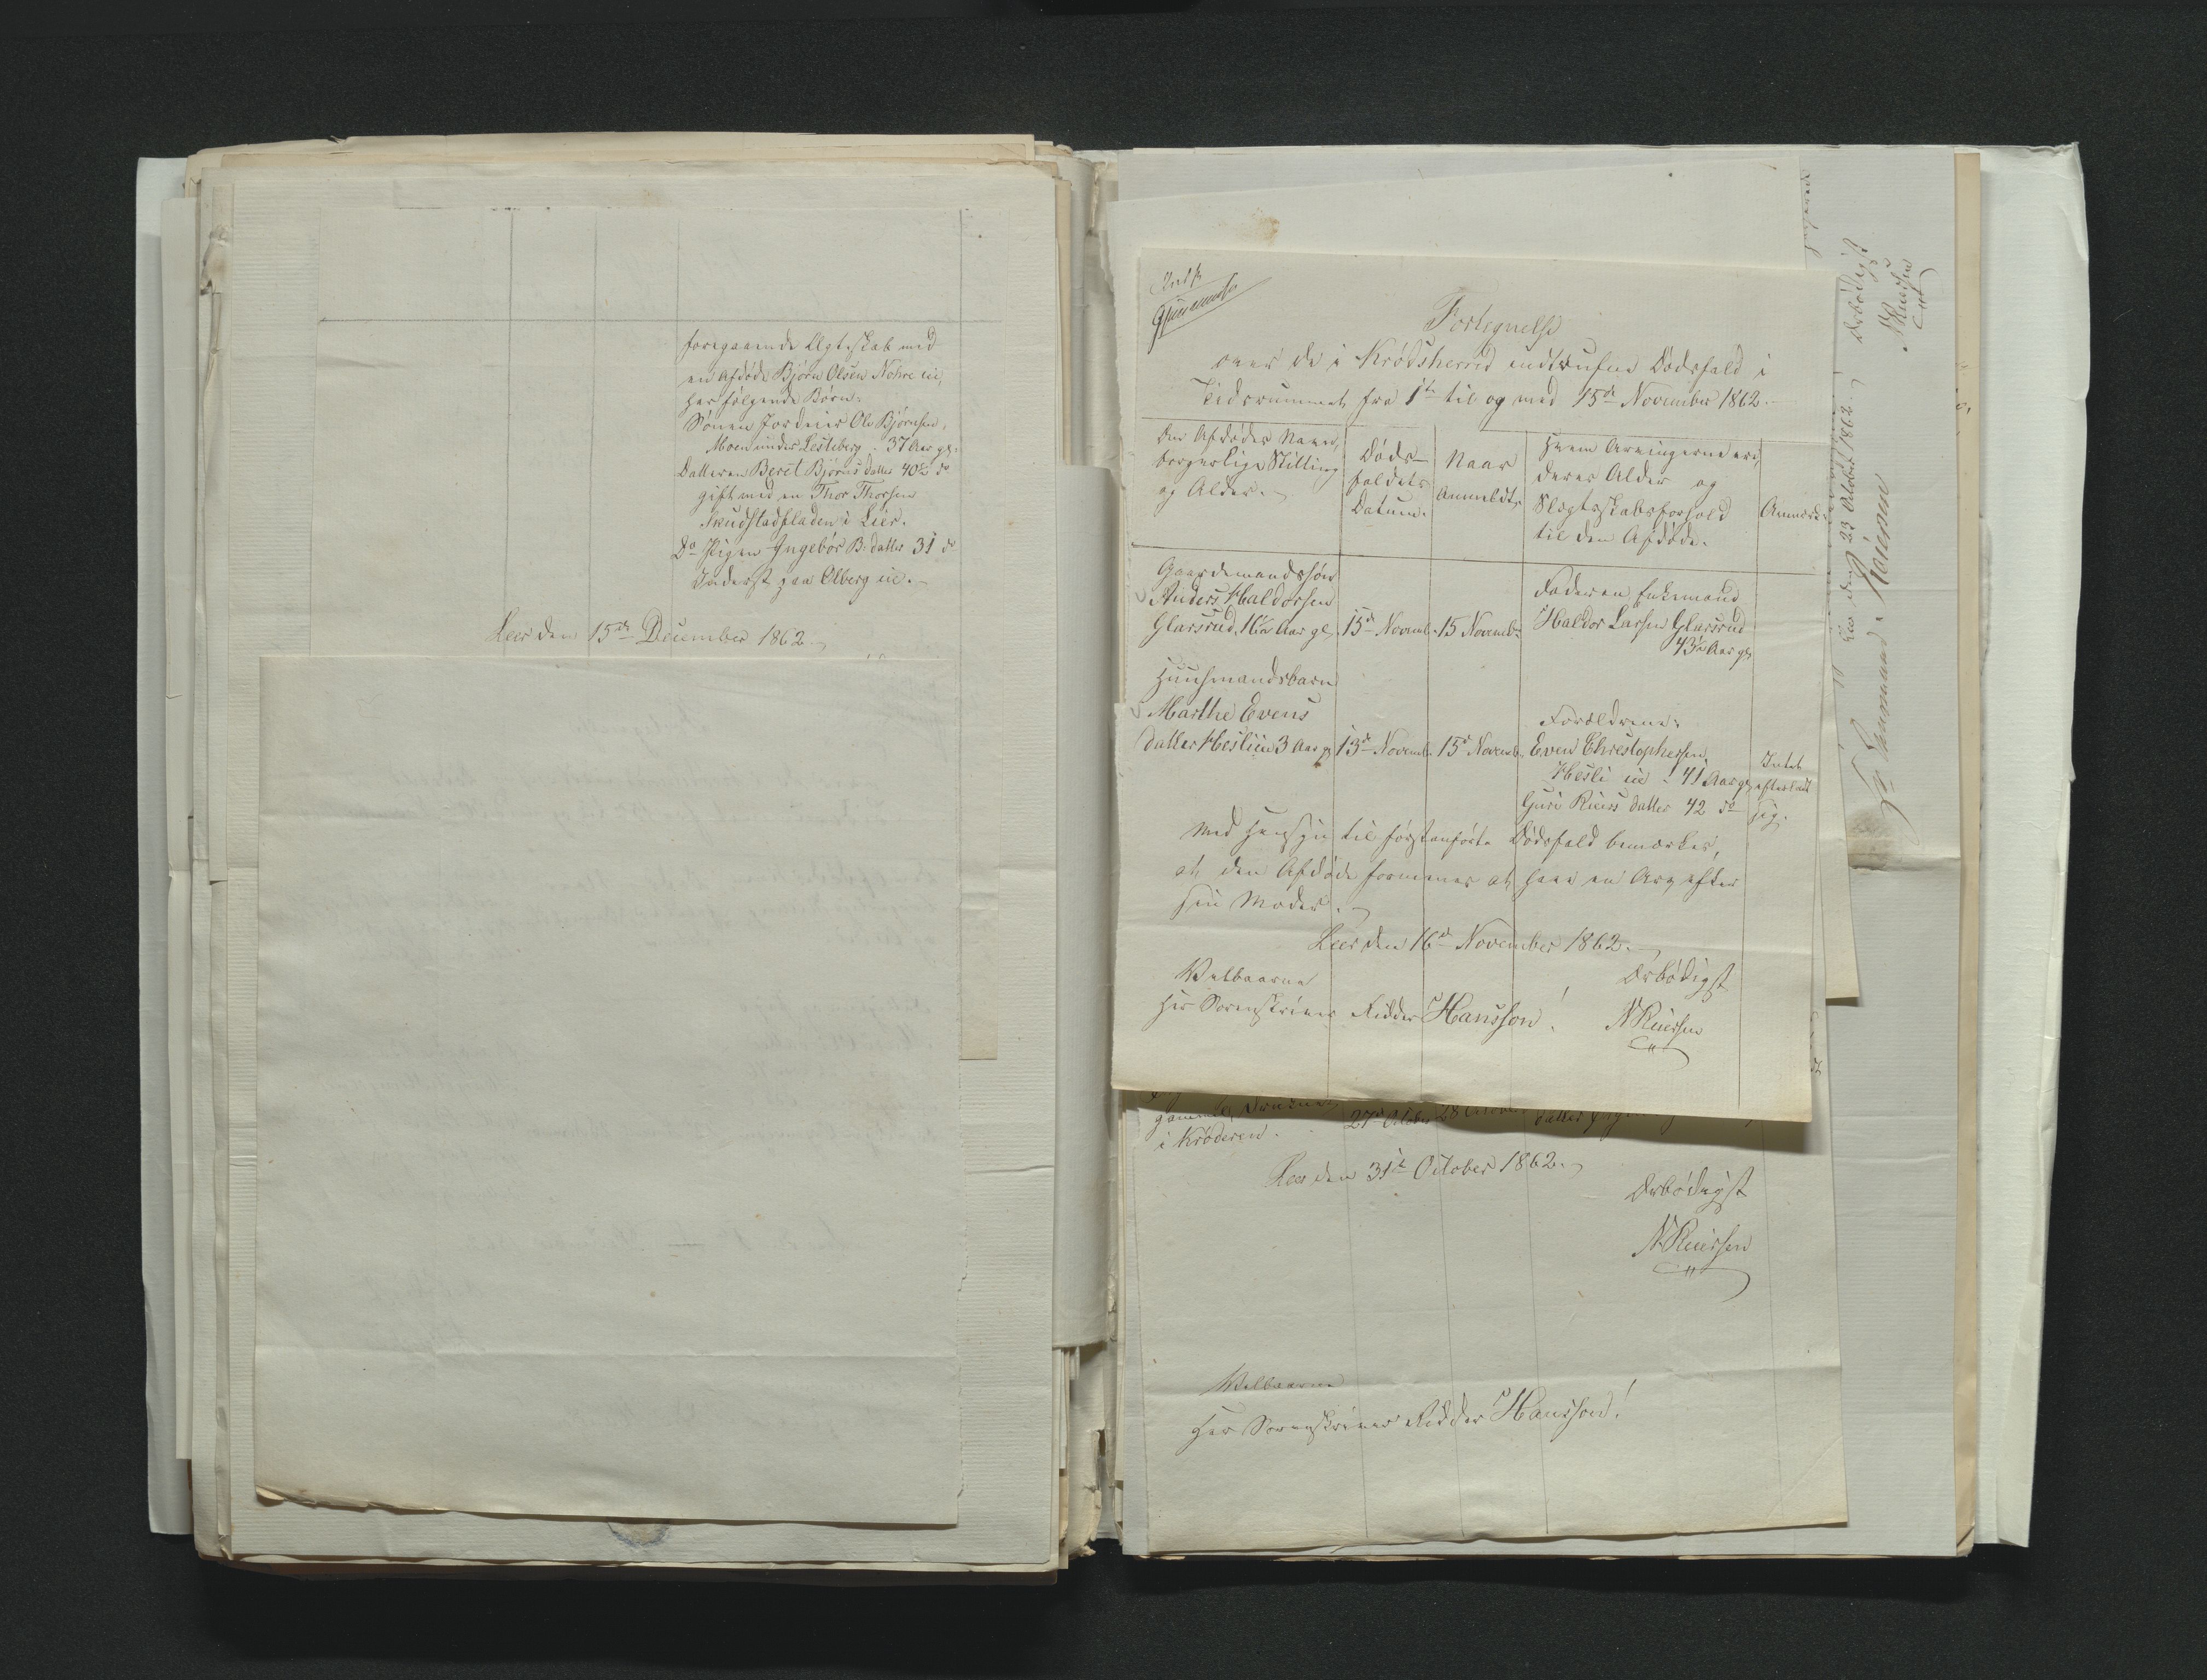 foregaaende Ægteskab med
en Afdøde Bjørn Olsen Nohre eie,
har følgende Børn:
Sønen Jordeier Ole Bjørnsen,
Moen under Lesteberg . 37 Aar gl:
Datteren Beret Bjørns datter 40½ do
gift med en Thor Thorsen
Skudstadfladen i Lier.
Do Pigen Ingebor B: datter 31 do
Inderst paa Olberg eie.
Leer den 15de December 1862.
Fortegnelse
over de i Krødsherred indtrufne Dødsfald i
Tidsrummet fra 1te til og med 15de November 1862.
Den Afdødes Navn,
borgerlige Stilling
og Alder.
Døds-
faldets
Datum.
Naar
Anmeldt.
Hvem Arvingerne ere,
deres Alder og
Slægtskabsforhold
til den Afdøde.
Anmærk:
Gaardmandssøn
Anders Haldorsen
Glarsrud, 16½ Aar gl.
15de Novemb.
15 Novemb:
Faderen Enkemand
Haldor Larsen Glarsrud
43½ Aar gl
Huusmandsbarn
Marthe Evens
datter Heslien 3 Aar gl
13de Novemb.
15de Novemb.
Forældrene:
Even Christophersen,
Hesli eie - 41 Aar gl,
Guri Ruers datter 42 do
Intet
efterladt
sig.
Med Hensyn til førstanførte Dødsfald bemærkes,
at den Afdøde formenes at have en Arv efter
sin Moder.
Leer den 16de November 1862.
Velbaarne
Hr Sorenskriver Ridder Hansson!
Ærbødigst
N Ruersen
i Krøderen.
27de October
28 October
Leer den 31te October 1862.
Ærbødigst
N Ruersen
Velbaarne
Herr Sorenskriver Ridder Hansson!
Leer den 23 October 1862.
Ærbødigst
N Ruersen